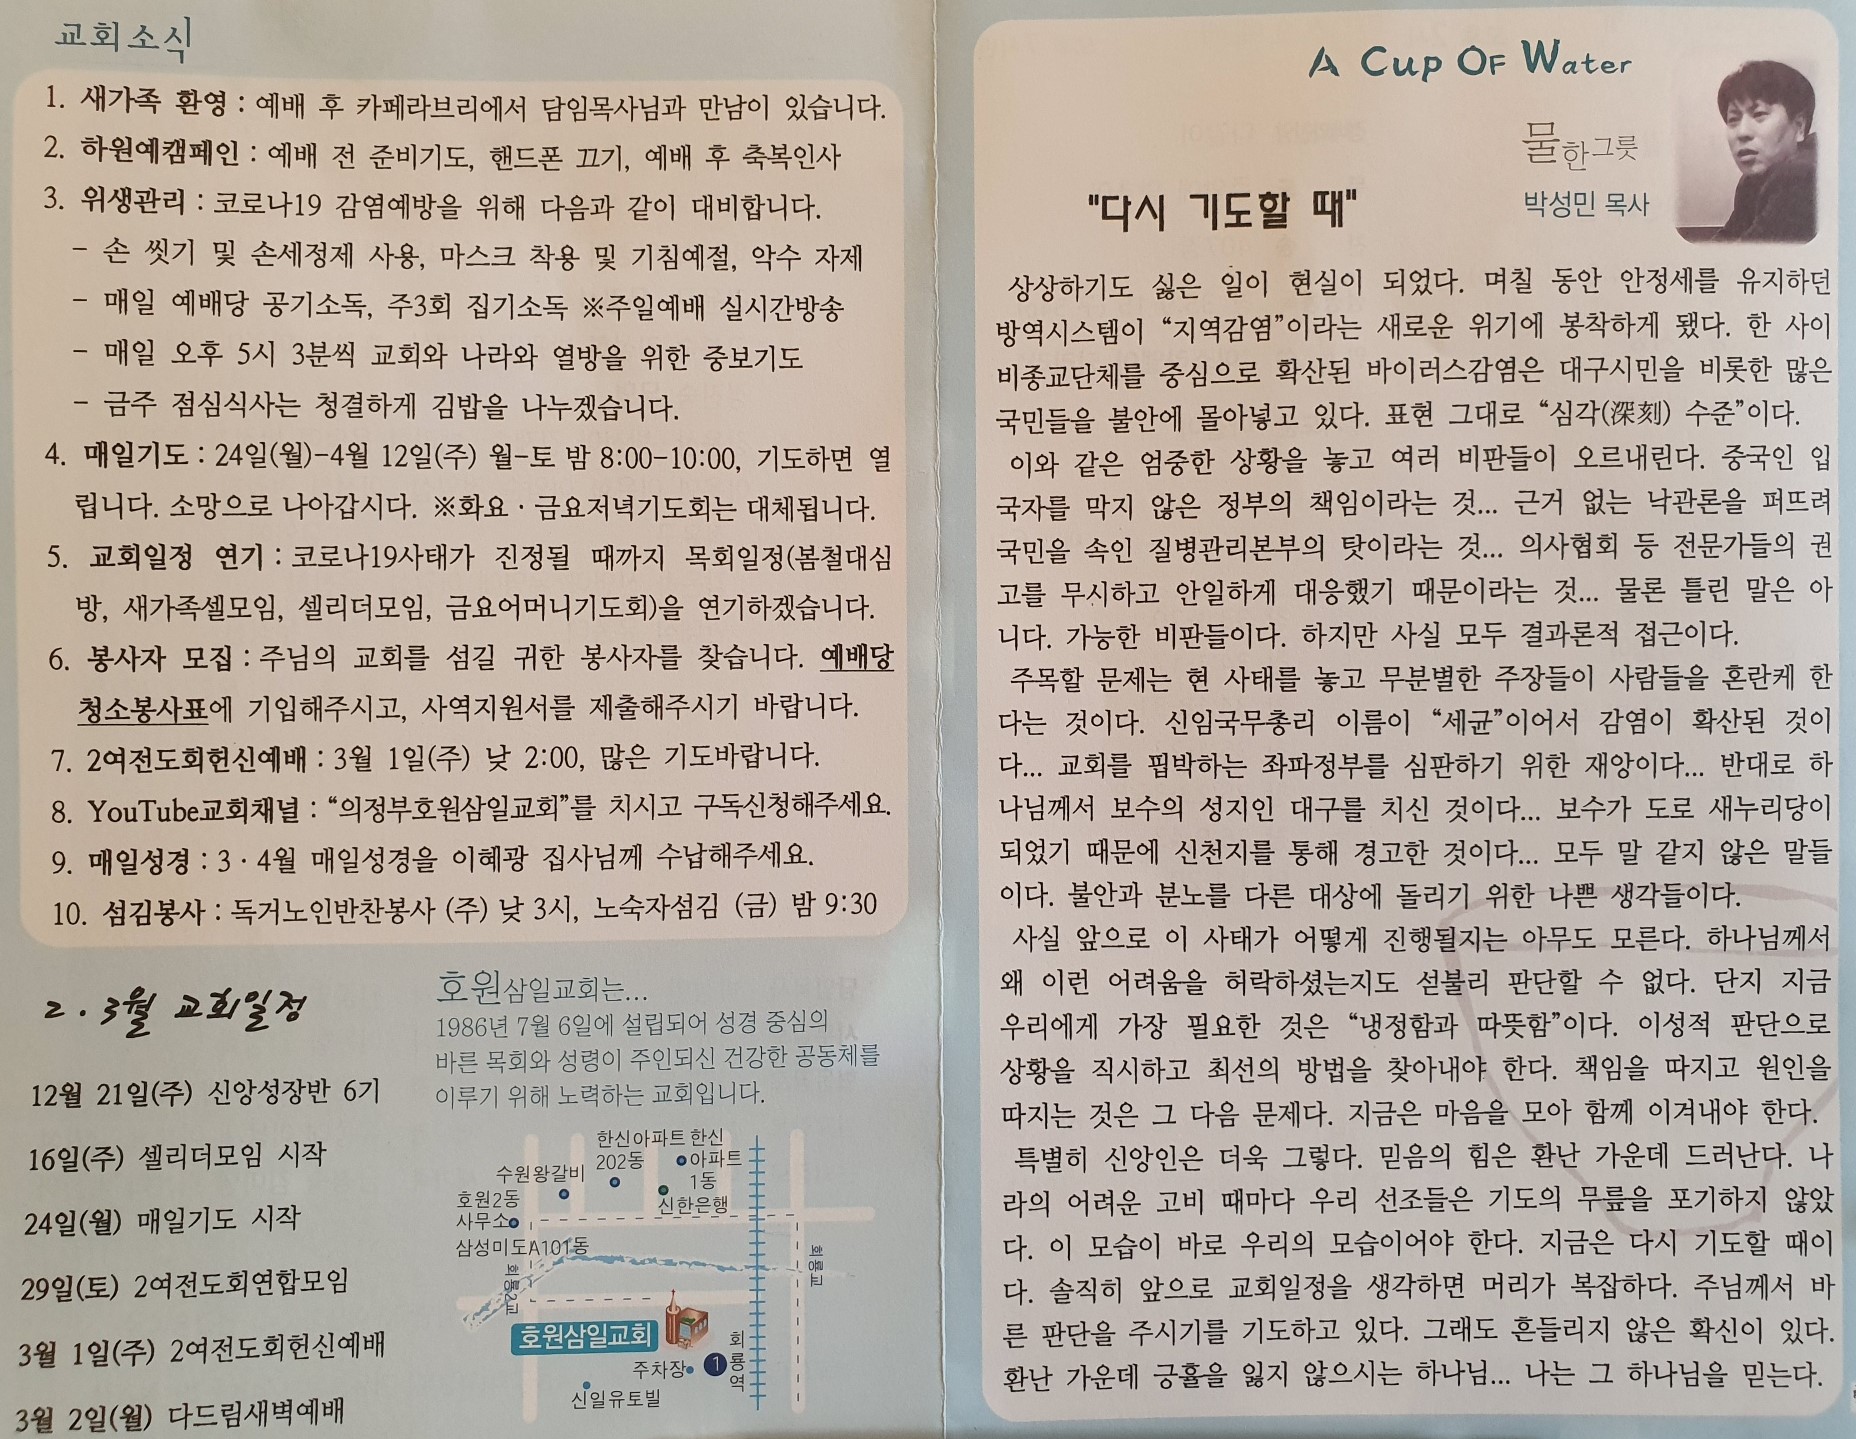 교회소식
1. 새가족 환영 : 예배 후 카페라브리에서 담임목사님과 만남이 있습니다.
2. 하원예캠페인 : 예배 전 준비기도, 핸드폰 끄기, 예배 후 축복인사
3. 위생관리 : 코로나19 감염예방을 위해 다음과 같이 대비합니다.
- 손 씻기 및 손세정제 사용, 마스크 착용 및 기침예절, 악수 자제
- 매일 예배당 공기소독, 주3회 집기소독 ※주일예배 실시간방송
- 매일 오후 5시 3분씩 교회와 나라와 열방을 위한 중보기도
- 금주 점심식사는 청결하게 김밥을 나누겠습니다.
4. 매일기도 : 24일(월)-4월 12일(주) 월-토 밤 8:00-10:00, 기도하면 열
립니다. 소망으로 나아갑시다. ※화요·금요저녁기도회는 대체됩니다.
5. 교회일정 연기 : 코로나19사태가 진정될 때까지 목회일정(봄철대심
방, 새가족셀모임, 셀리더모임, 금요어머니기도회)을 연기하겠습니다.
6. 봉사자 모집 : 주님의 교회를 섬길 귀한 봉사자를 찾습니다. 예배당
청소봉사표에 기입해주시고, 사역지원서를 제출해주시기 바랍니다.
7. 2여전도회헌신예배 : 3월 1일(주) 낮 2:00, 많은 기도바랍니다.
8. YouTube교회채널 : “의정부호원삼일교회”를 치시고 구독신청해주세요.
9. 매일성경 : 3·4월 매일성경을 이혜광 집사님께 수납해주세요.
10. 섬김봉사 : 독거노인반찬봉사 (주) 낮 3시, 노숙자섬김 (금) 밤 9:30
2·3월 교회일정
12월 21일(주) 신앙성장반 6기
16일(주) 셀리더모임 시작
24일(월) 매일기도 시작
29일(토) 2여전도회연합모임
3월 1일(주) 2여전도회헌신예배
3월 2일(월) 다드림새벽예배
호원삼일교회는...
1986년 7월 6일에 설립되어 성경 중심의
바른 목회와 성령이 주인되신 건강한 공동체를
이루기 위해 노력하는 교회입니다.
한신아파트
202동
한신
아파트
1동
수원왕갈비
신한은행
호원2동
사무소
삼성미도A101동
회룡2교
회룡교
호원삼일교회
주차장
1
회룡역
신일유토빌
A Cup OF Water
물한그릇
박성민 목사
"다시 기도할 때"
상상하기도 싫은 일이 현실이 되었다. 며칠 동안 안정세를 유지하던
방역시스템이 “지역감염”이라는 새로운 위기에 봉착하게 됐다. 한 사이
비종교단체를 중심으로 확산된 바이러스감염은 대구시민을 비롯한 많은
국민들을 불안에 몰아넣고 있다. 표현 그대로 “심각(深刻) 수준”이다.
이와 같은 엄중한 상황을 놓고 여러 비판들이 오르내린다. 중국인 입
국자를 막지 않은 정부의 책임이라는 것... 근거 없는 낙관론을 퍼뜨려
국민을 속인 질병관리본부의 탓이라는 것... 의사협회 등 전문가들의 권
고를 무시하고 안일하게 대응했기 때문이라는 것... 물론 틀린 말은 아
니다. 가능한 비판들이다. 하지만 사실 모두 결과론적 접근이다.
주목할 문제는 현 사태를 놓고 무분별한 주장들이 사람들을 혼란케 한
다는 것이다. 신임국무총리 이름이 “세균”이어서 감염이 확산된 것이
다... 교회를 핍박하는 좌파정부를 심판하기 위한 재앙이다... 반대로 하
나님께서 보수의 성지인 대구를 치신 것이다... 보수가 도로 새누리당이
되었기 때문에 신천지를 통해 경고한 것이다... 모두 말 같지 않은 말들
이다. 불안과 분노를 다른 대상에 돌리기 위한 나쁜 생각들이다.
사실 앞으로 이 사태가 어떻게 진행될지는 아무도 모른다. 하나님께서
왜 이런 어려움을 허락하셨는지도 섣불리 판단할 수 없다. 단지 지금
우리에게 가장 필요한 것은 “냉정함과 따뜻함”이다. 이성적 판단으로
상황을 직시하고 최선의 방법을 찾아내야 한다. 책임을 따지고 원인을
따지는 것은 그 다음 문제다. 지금은 마음을 모아 함께 이겨내야 한다.
특별히 신앙인은 더욱 그렇다. 믿음의 힘은 환난 가운데 드러난다. 나
라의 어려운 고비 때마다 우리 선조들은 기도의 무릎을 포기하지 않았
다. 이 모습이 바로 우리의 모습이어야 한다. 지금은 다시 기도할 때이
다. 솔직히 앞으로 교회일정을 생각하면 머리가 복잡하다. 주님께서 바
른 판단을 주시기를 기도하고 있다. 그래도 흔들리지 않은 확신이 있다.
환난 가운데 긍휼을 잃지 않으시는 하나님... 나는 그 하나님을 믿는다.